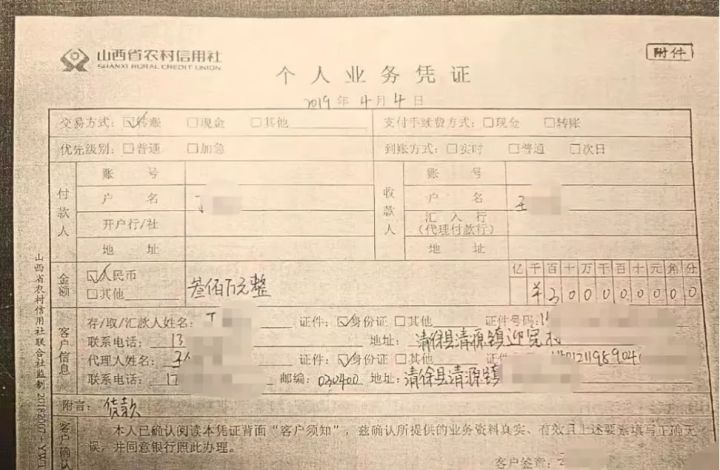 山西省农村信用社
SHANXI RURAL CREDIT UNION
附件
个人业务凭证
2019年4月4日
交易方式：☑转账 □现金 □其他 支付手续费方式：□现金 □转账
优先级别：□普通 □加急 到账方式：□实时 □普通 □次日
付款人 账号 收款人 账号
户名 丁 户名 王
开户行/社 汇入行（代理付款行）
地址 地址
金额 ☑人民币 叁佰万元整 亿千百十万千百十元角分
□其他 ¥300000000
客户信息 存/取/汇款人姓名：丁 证件：☑身份证 □其他 证件号码：1
联系电话：13 地址：清徐县清源镇迎宪村
代理人姓名：王 证件：☑身份证 □其他
联系电话：1 邮编：030400 地址：清徐县清源镇
附言：货款
客户确认 本人已确认阅读本凭证背面“客户须知”，兹确认所提供的业务资料真实、有效且上述要素填写正确无
误，并同意银行照此办理。
客户签章
山西省农村信用社联合社监制